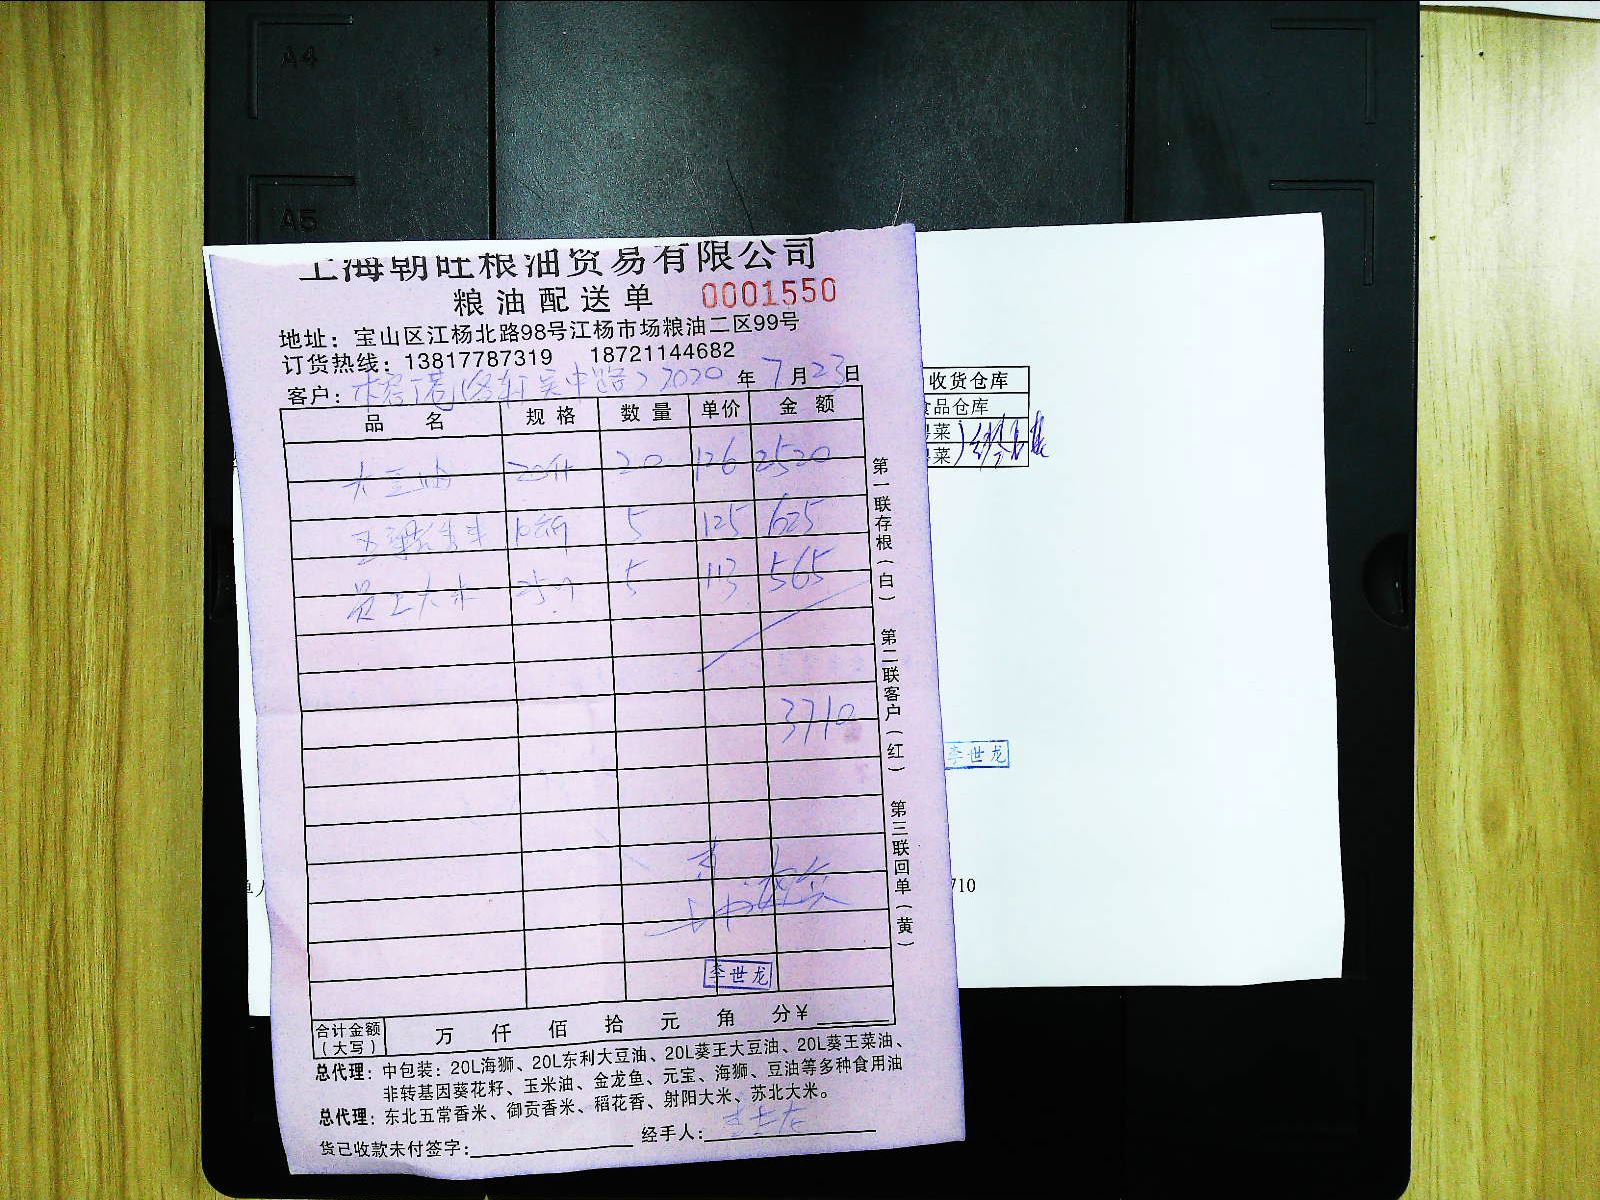 A4
A5
上海朝旺粮油贸易有限公司
粮油配送单 0001550
地址：宝山区江杨北路98号江杨市场粮油二区99号
订货热线：13817787319 18721144682
客户： 2020 年 7 月 23 日
品 名 规 格 数 量 单价 金 额
大豆油 20升 20 126 2520
5 125 625
大米 5 113 565
3710
李世龙
合计金额（大写） 万 仟 佰 拾 元 角 分￥
总代理：中包装：20L海狮、20L东利大豆油、20L葵王大豆油、20L葵王菜油、
非转基因葵花籽、玉米油、金龙鱼、元宝、海狮、豆油等多种食用油
总代理：东北五常香米、御贡香米、稻花香、射阳大米、苏北大米。
货已收款未付签字： 经手人：
第一联存根（白） 第二联客户（红） 第三联回单（黄）
收货仓库
食品仓库
菜
菜
李世龙
710